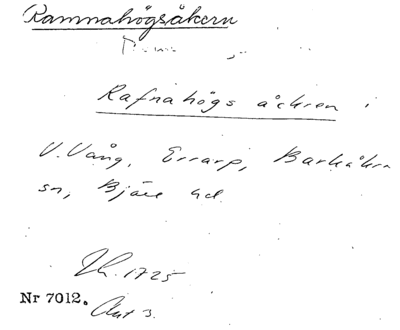 Ramnahögsåkern
Rafnahögs åckren i
V. Vång, Errarp, Barkåkra
sn, Bjäre hd.
1725
Nr 7012.
Akt 3.